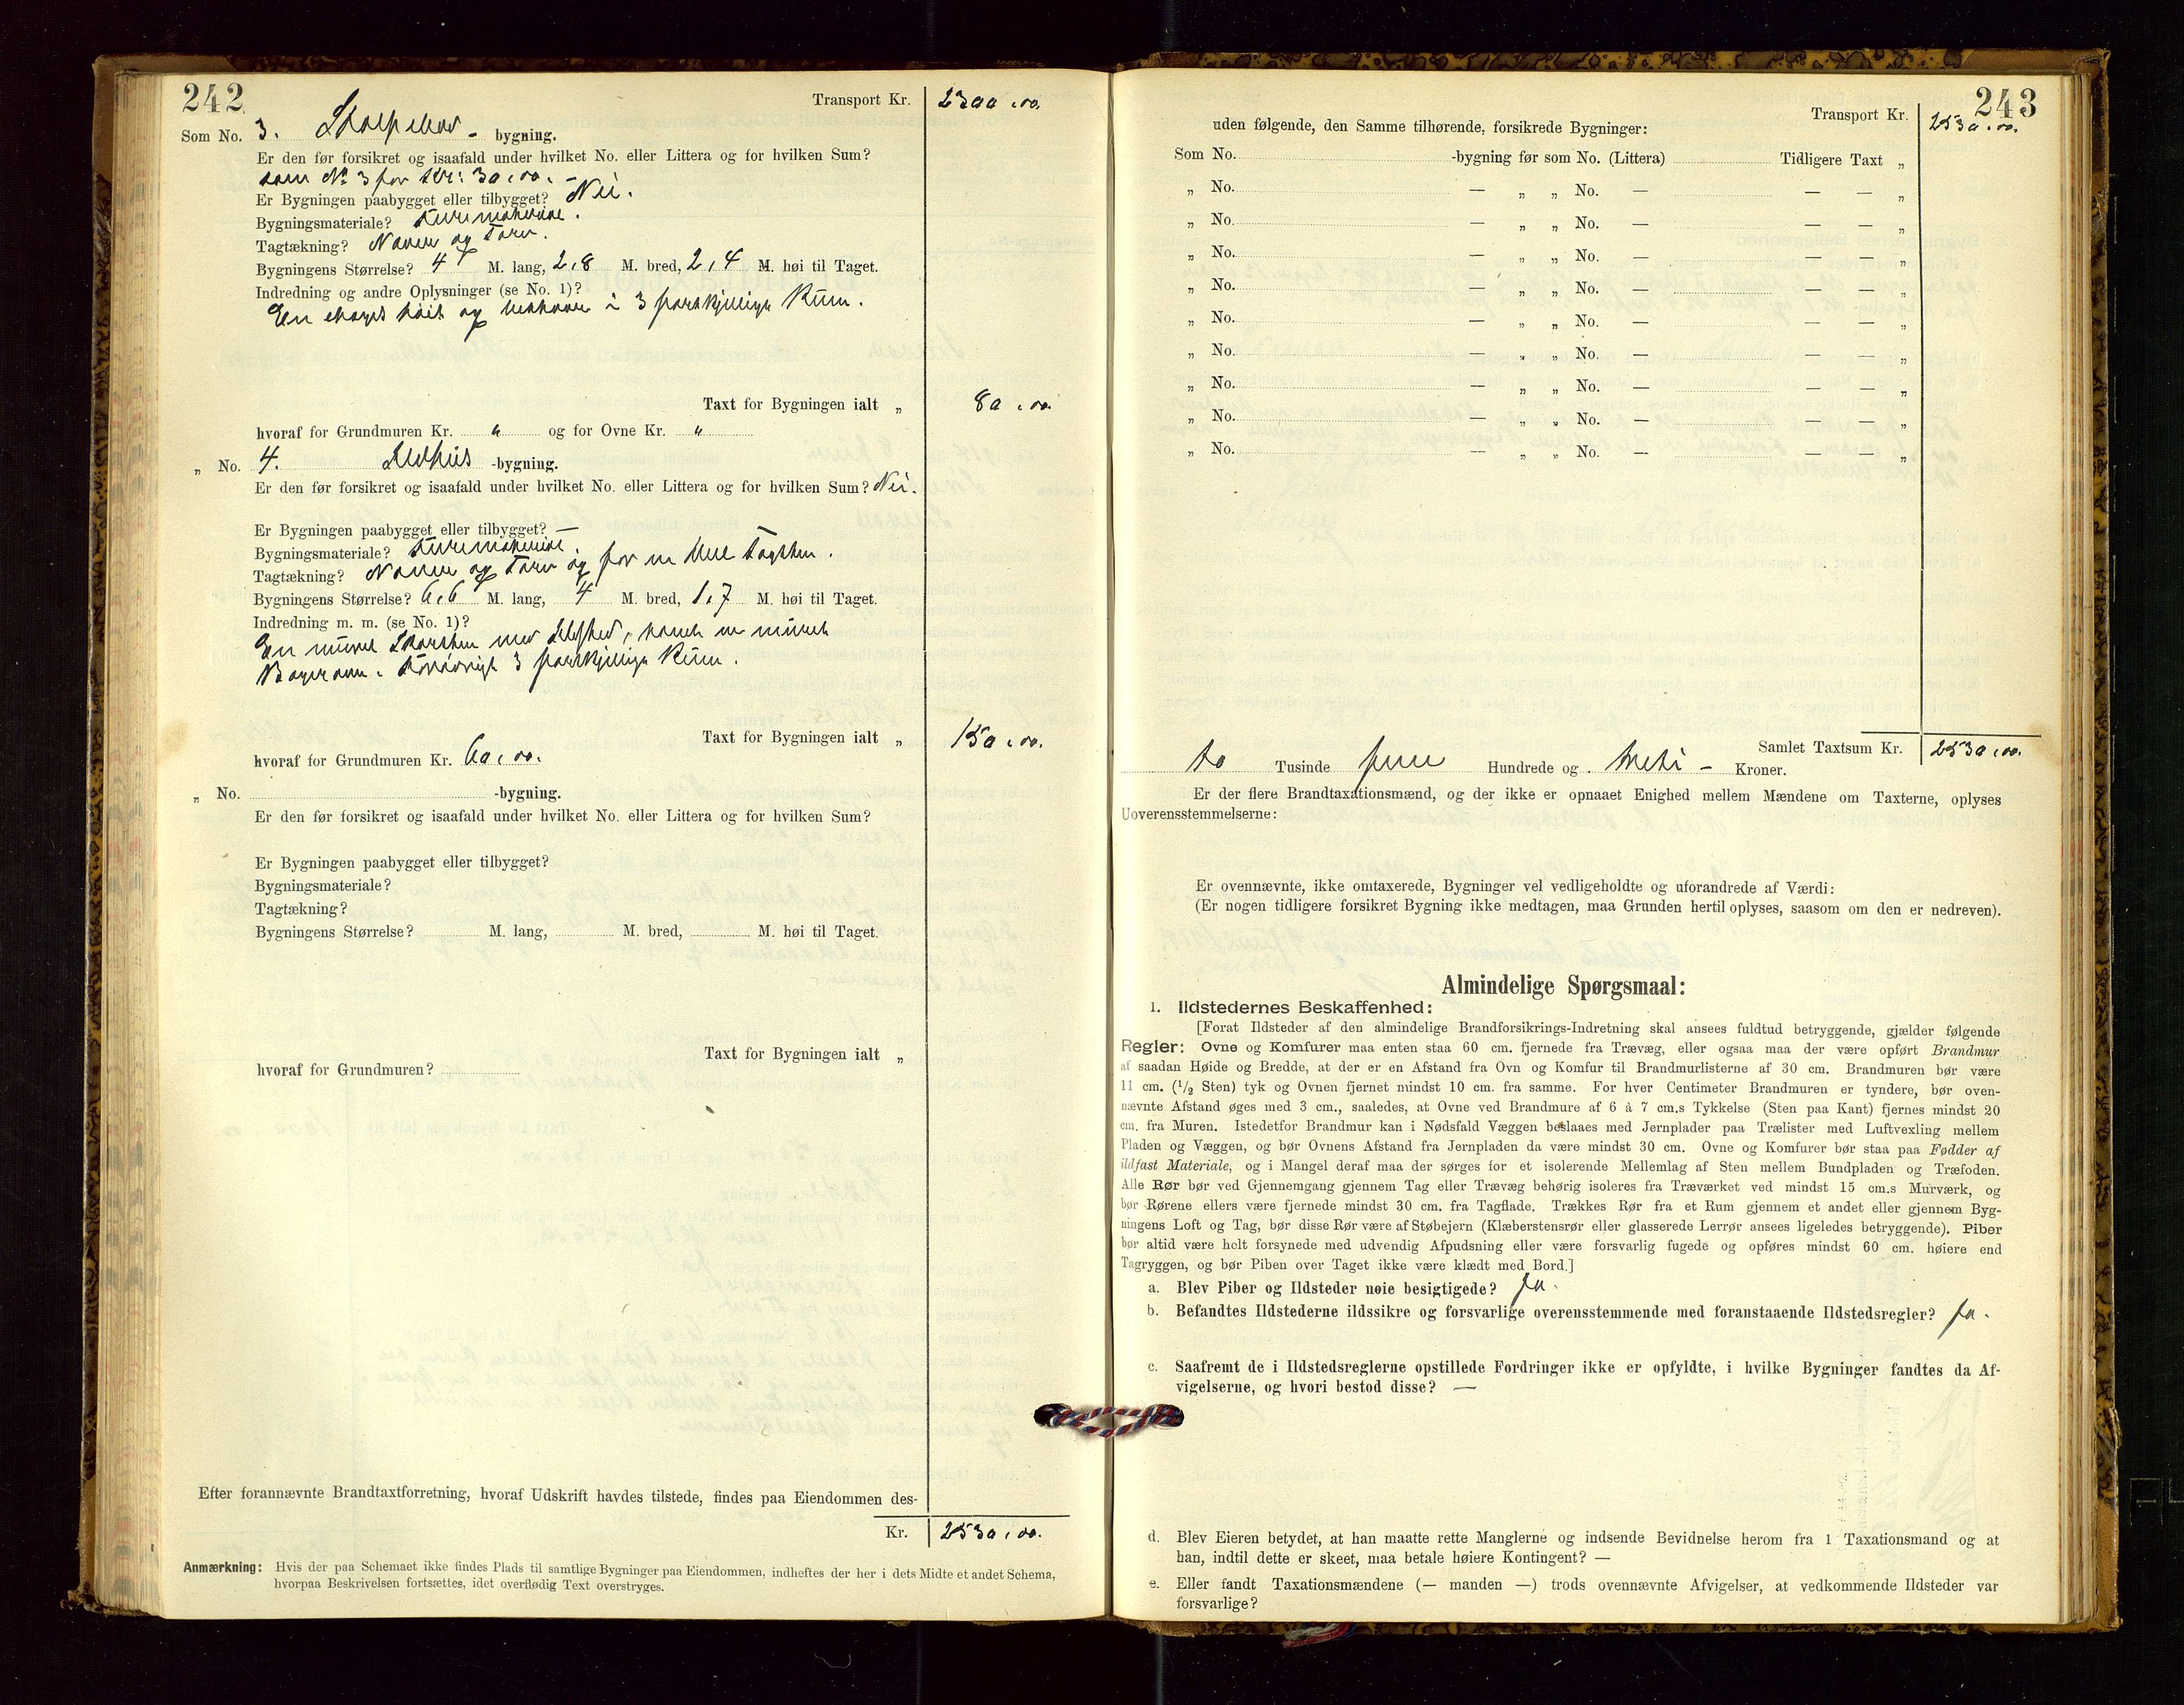 242
Transport Kr. 2300,00.
Som No. 3. - bygning.
Er den før forsikret og isaafald under hvilket No. eller Littera og for hvilken Sum?
som No 3 for Kr: 30,00. –
Er Bygningen paabygget eller tilbygget? Nei.
Bygningsmateriale?
Tagtækning? Næver og Torv.
Bygningens Størrelse? 4 M. lang, 2,8 M. bred, 2,4 M. høi til Taget.
Indredning og andre Oplysninger (se No. 1)?
En etages høit og i 3 forskjellige Rum.
Taxt for Bygningen ialt „ 80,00.
hvoraf for Grundmuren Kr. " og for Ovne Kr. "
„ No. 4. Ildhus -bygning.
Er den før forsikret og isaafald under hvilket No. eller Littera og for hvilken Sum? Nei.
Er Bygningen paabygget eller tilbygget? —
Bygningsmateriale?
Tagtækning? Næver og Torv og for en Deel Tagsten.
Bygningens Størrelse? 6,6 M. lang, 4 M. bred, 1,7 M. høi til Taget.
Indredning m. m. (se No. 1)?
En muret Skorsten med Ildsted, samt en muret
Bagerovn. Forøvrigt 3 forskjellige Rum.
Taxt for Bygningen ialt „ 150,00.
hvoraf for Grundmuren Kr. 60,00.
„ No. -bygning.
Er den før forsikret og isaafald under hvilket No. eller Littera og for hvilken Sum?
Er Bygningen paabygget eller tilbygget?
Bygningsmateriale?
Tagtækning?
Bygningens Størrelse? M. lang, M. bred, M. høi til Taget.
Taxt for Bygningen ialt „
hvoraf for Grundmuren?
Efter forannævnte Brandtaxtforretning, hvoraf Udskrift havdes tilstede, findes paa Eiendommen des-
Kr. 2530,00.
Anmærkning: Hvis der paa Schemaet ikke findes Plads til samtlige Bygninger paa Eiendommen, indheftes der her i dets Midte et andet Schema,
hvorpaa Beskrivelsen fortsættes, idet overflødig Text overstryges.
243
Transport Kr. 2530,00.
uden følgende, den Samme tilhørende, forsikrede Bygninger:
Som No. -bygning før som No. (Littera) Tidligere Taxt „
„ No. — „ „ No. — — — „
„ No. — „ „ No. — — — „
„ No. — „ „ No. — — — „
„ No. — „ „ No. — — — „
„ No. — „ „ No. — — — „
„ No. — „ „ No. — — — „
„ No. — „ „ No. — — — „
„ No. — „ „ No. — — — „
„ No. — „ „ No. — — — „
Samlet Taxtsum Kr. 2530,00.
to Tusinde fem Hundrede og treti – Kroner.
Er der flere Brandtaxationsmænd, og der ikke er opnaaet Enighed mellem Mændene om Taxterne, oplyses
Uoverensstemmelserne:
Er ovennævnte, ikke omtaxerede, Bygninger vel vedligeholdte og uforandrede af Værdi:
(Er nogen tidligere forsikret Bygning ikke medtagen, maa Grunden hertil oplyses, saasom om den er nedreven).
Almindelige Spørgsmaal:
1. Ildstedernes Beskaffenhed:
[Forat Ildsteder af den almindelige Brandforsikrings-Indretning skal ansees fuldtud betryggende, gjælder følgende
Regler: Ovne og Komfurer maa enten staa 60 cm. fjernede fra Trævæg, eller ogsaa maa der være opført Brandmur
af saadan Høide og Bredde, at der er en Afstand fra Ovn og Komfur til Brandmurlisterne af 30 cm. Brandmuren bør være
11 cm. (1/2 Sten) tyk og Ovnen fjernet mindst 10 cm. fra samme. For hver Centimeter Brandmuren er tyndere, bør oven-
nævnte Afstand øges med 3 cm., saaledes, at Ovne ved Brandmure af 6 à 7 cm.s Tykkelse (Sten paa Kant) fjernes mindst 20
cm. fra Muren. Istedetfor Brandmur kan i Nødsfald Væggen beslaaes med Jernplader paa Trælister med Luftvexling mellem
Pladen og Væggen, og bør Ovnens Afstand fra Jernpladen da være mindst 30 cm. Ovne og Komfurer bør staa paa Fødder af
ildfast Materiale, og i Mangel deraf maa der sørges for et isolerende Mellemlag af Sten mellem Bundpladen og Træfoden.
Alle Rør bør ved Gjennemgang gjennem Tag eller Trævæg behørig isoleres fra Træværket ved mindst 15 cm.s Murværk, og
bør Rørene ellers være fjernede mindst 30 cm. fra Tagflade. Trækkes Rør fra et Rum gjennem et andet eller gjennem Byg-
ningens Loft og Tag, bør disse Rør være af Støbejern (Klæberstensrør eller glasserede Lerrør ansees ligeledes betryggende). Piber
bør altid være helt forsynede med udvendig Afpudsning eller være forsvarlig fugede og opføres mindst 60 cm. høiere end
Tagryggen, og bør Piben over Taget ikke være klædt med Bord.]
a. Blev Piber og Ildsteder nøie besigtigede? Ja.
b. Befandtes Ildstederne ildssikre og forsvarlige overensstemmende med foranstaaende Ildstedsregler? Ja.
c. Saafremt de i Ildstedsreglerne opstillede Fordringer ikke er opfyldte, i hvilke Bygninger fandtes da Af-
vigelserne, og hvori bestod disse? —
d. Blev Eieren betydet, at han maatte rette Manglerne og indsende Bevidnelse herom fra 1 Taxationsmand og at
han, indtil dette er skeet, maa betale høiere Kontingent? —
e. Eller fandt Taxationsmændene (— manden —) trods ovennævnte Afvigelser, at vedkommende Ildsteder var
forsvarlige?